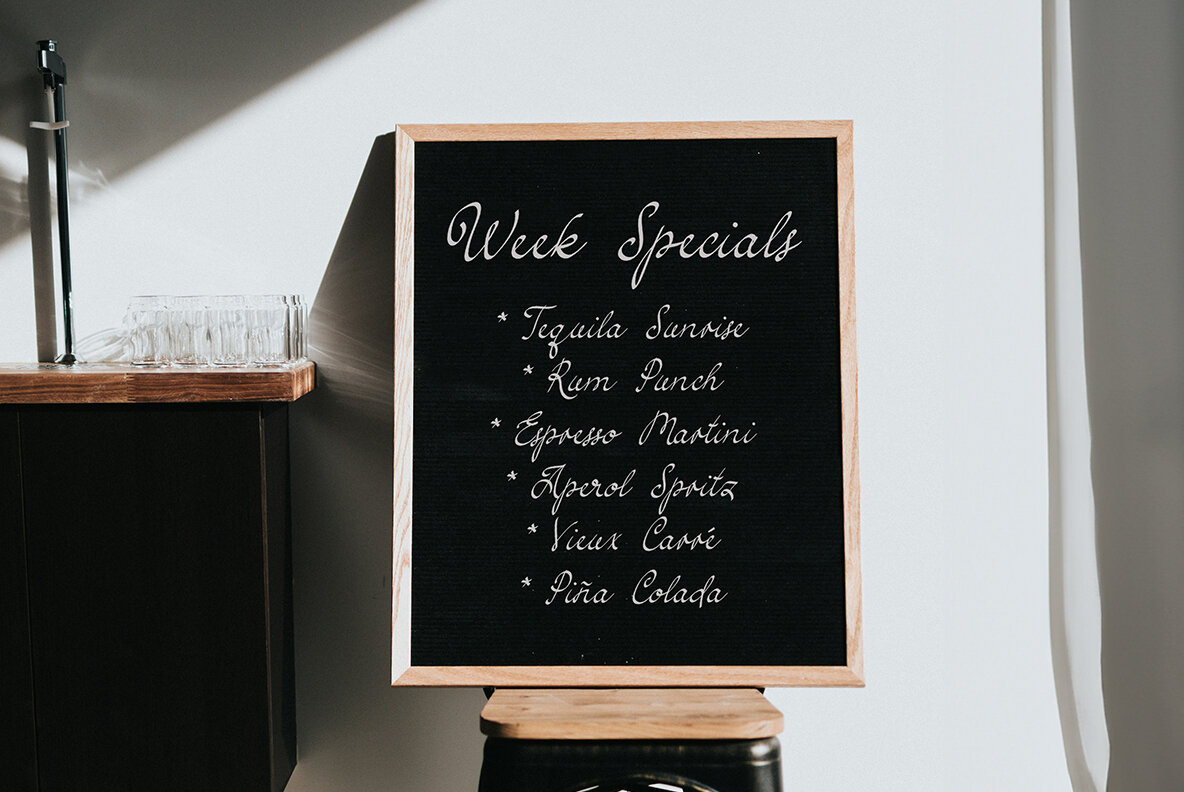 Week Specials
* Tequila Sunrise
* Rum Punch
* Espresso Martini
* Aperol Spritz
* Vieux Carré
* Piña Colada